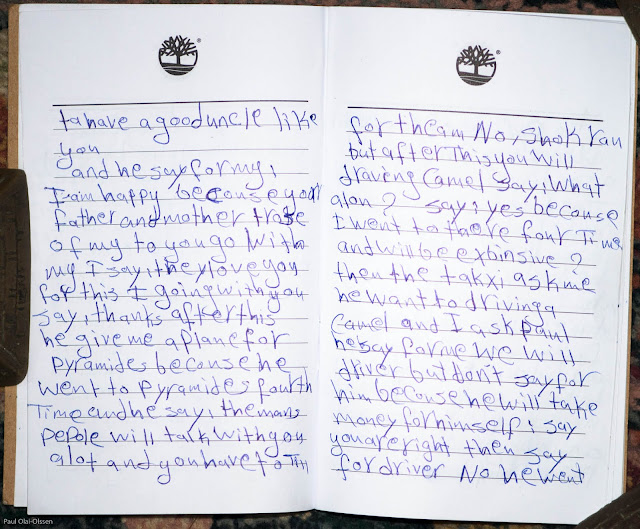 tahave a good uncle like
you
and he say for my,
I am happy becouse your
father and mother traste
of my to you go with
my I say, they love you
for this I going with you
say, thanks after this
he give me a plane for
pyramides becouse he
went to pyramides fourth
Time and he say, the mans
pepole will talk with you
alot and you have to Till
for theam No, Shok ran
but after This, you will
draveng Camel say, what
alon? say, yes because
I went to there four Time
and will be exbinsive?
then the takxi ask me
he want to driving a
Camel and I ask paul
he say for me we will
driver but don't say for
him because he will take
money for himself, say
you are right then say
for driver No he went
Paul Olai-Olssen